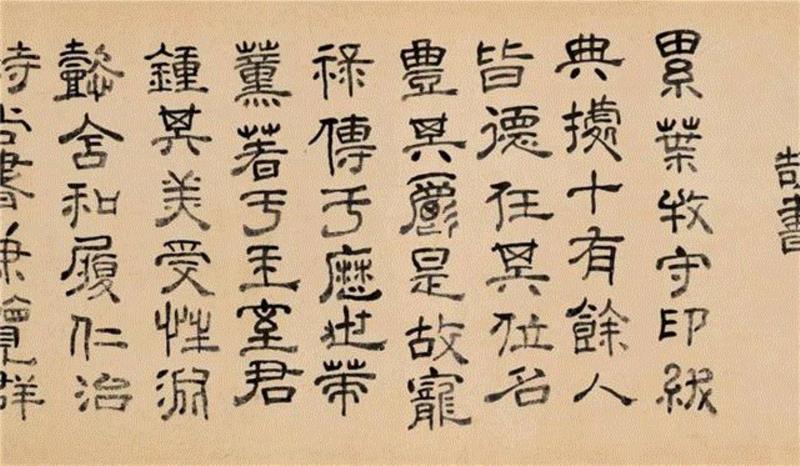 書
累葉牧守印紱
典據十有餘人
皆德任其位名
豐其爵是故寵
祿傳于歷世策
薰著于王室君
鍾其美受性淵
懿含和履仁治
詩尚書兼覽群